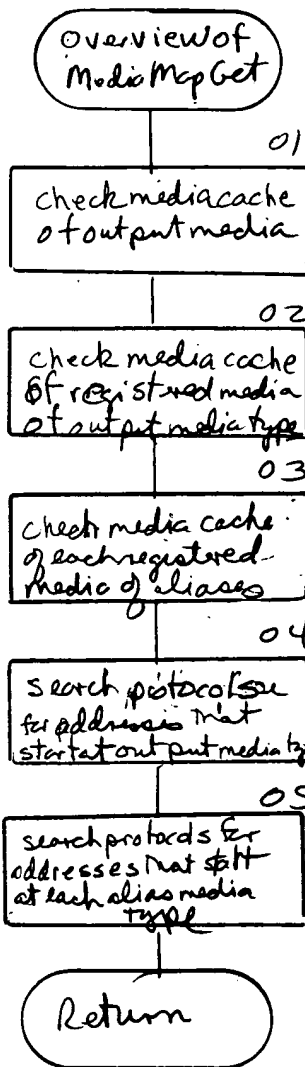 overview of
MediaMapGet
01
check media cache
of output media
02
check media cache
of registered media
of output media type
03
check media cache
of each registered
media of aliases
04
search protocols
for addresses that
start at output media ty
05
search protocols for
addresses that start
at each alias media
type
Return